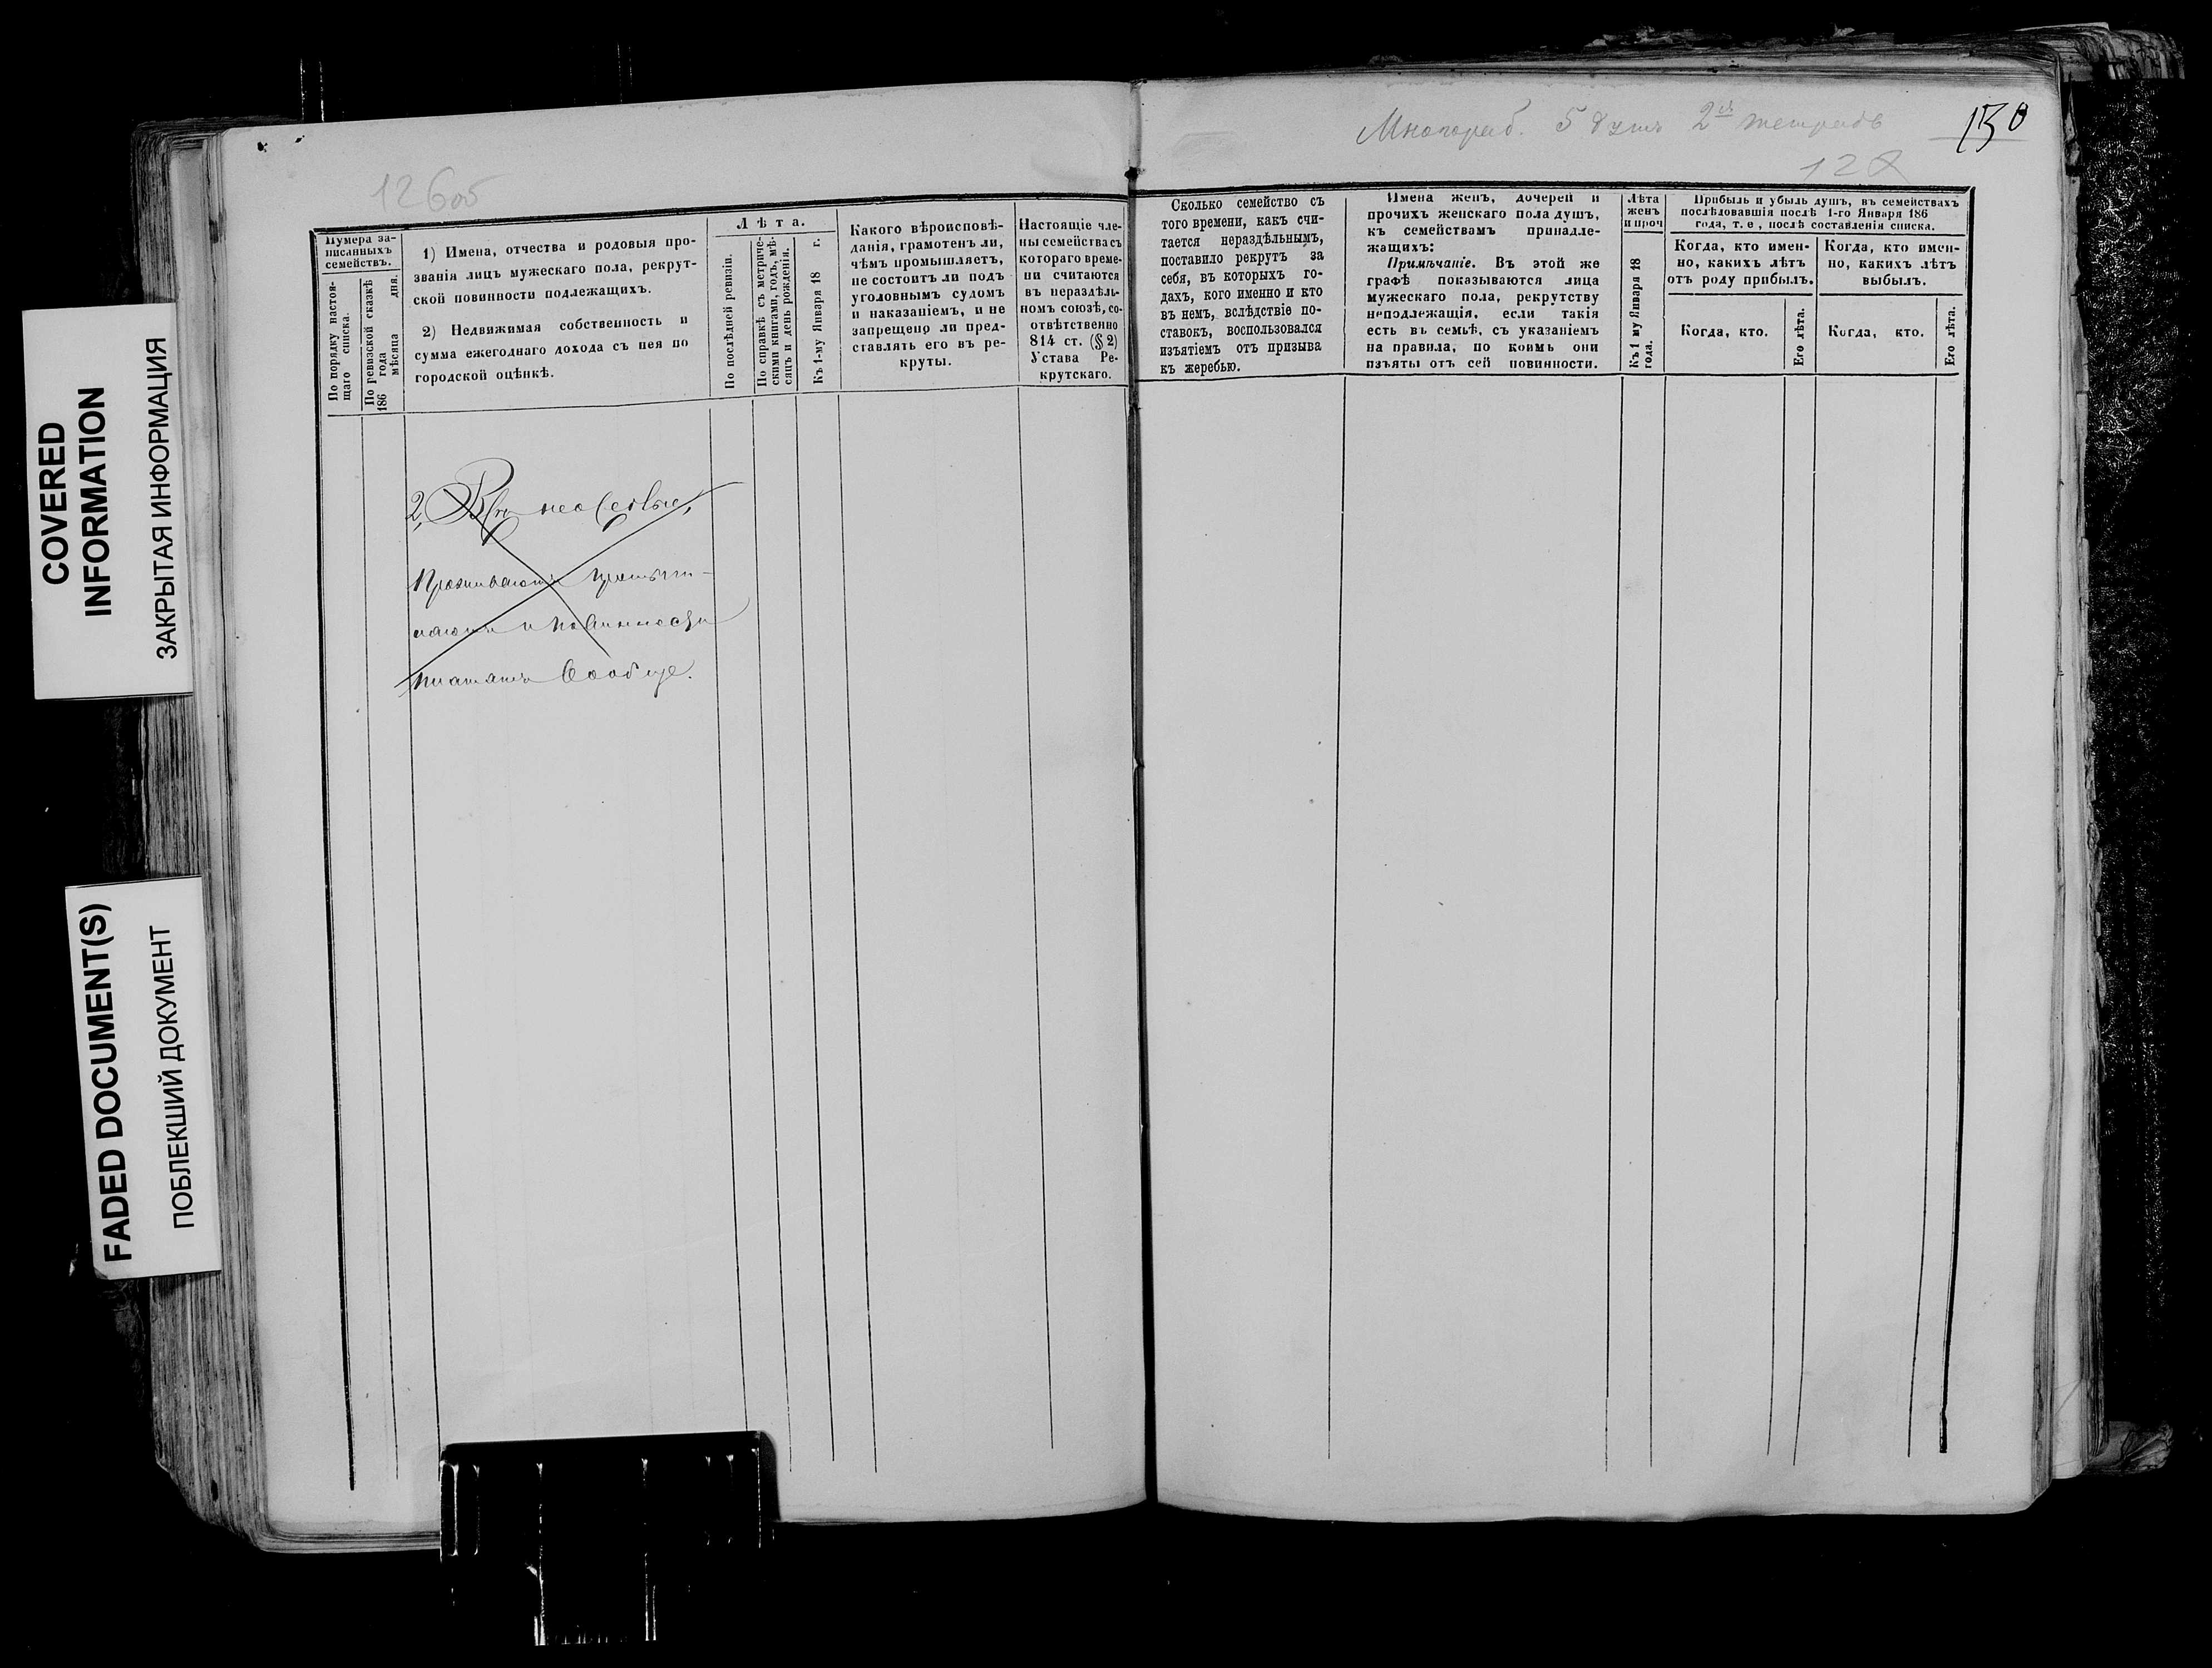 COVERED
INFORMATION
ЗАКРЫТАЯ ИНФОРМАЦИЯ
FADED DOCUMENT(S)
ПОБЛЕКШИЙ ДОКУМЕНТ
126об
Нумера за-
писанныхъ
семействъ.
По порядку настоя-
щаго списка.
По ревизской сказкѣ
186 года
мѣсяца дня.
1) Имена, отчества и родовыя про-
званія лицъ мужескаго пола, рекрут-
ской повинности подлежащихъ.
2) Недвижимая собственность и
сумма ежегоднаго дохода съ нея по
городской оцѣнкѣ.
Лѣта.
По послѣдней ревизіи.
По справкѣ съ метриче-
скими книгами, годъ, мѣ-
сяцъ и день рожденія.
Къ 1-му Января 18 г.
Какого вѣроисповѣ-
данія, грамотенъ ли,
чѣмъ промышляетъ,
не состоитъ ли подъ
уголовнымъ судомъ
и наказаніемъ, и не
запрещено ли пред-
ставлять его въ ре-
круты.
Настоящіе чле-
ны семейства съ
котораго време-
ни считаются
въ нераздѣль-
номъ союзѣ, со-
отвѣтственно
814 ст. (§ 2)
Устава Ре-
крутскаго.
2,
промыш-
и повинности
платятъ сообще.
5 душъ 2я тетрадь
130
Сколько семейство съ
того времени, какъ счи-
тается нераздѣльнымъ,
поставило рекрутъ за
себя, въ которыхъ го-
дахъ, кого именно и кто
въ немъ, вслѣдствіе по-
ставокъ, воспользовался
изъятіемъ отъ призыва
къ жеребью.
Имена женъ, дочерей и
прочихъ женскаго пола душъ,
къ семействамъ принадле-
жащихъ:
Примѣчаніе. Въ этой же
графѣ показываются лица
мужескаго пола, рекрутству
неподлежащія, если такія
есть въ семьѣ, съ указаніемъ
на правила, по коимъ они
изъяты отъ сей повинности.
Лѣта
женъ
и проч
Къ 1 му Января 18
года.
Прибыль и убыль душъ, въ семействахъ
послѣдовавшія послѣ 1-го Января 186
года, т. е, послѣ составленія списка.
Когда, кто имен-
но, какихъ лѣтъ
отъ роду прибылъ.
Когда, кто.
Его лѣта.
Когда, кто имен-
но, какихъ лѣтъ
выбылъ.
Когда, кто.
Его лѣта.